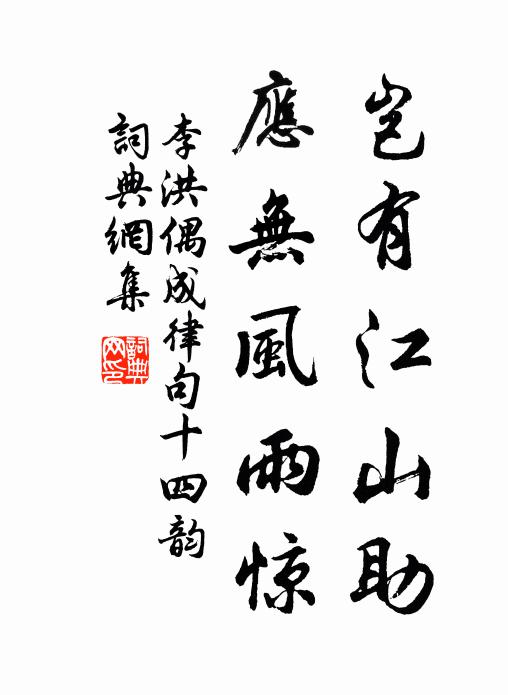 岂有江山助
應無風雨惊
李洪偶成律句十四韵
詞典網集
詞典
网印